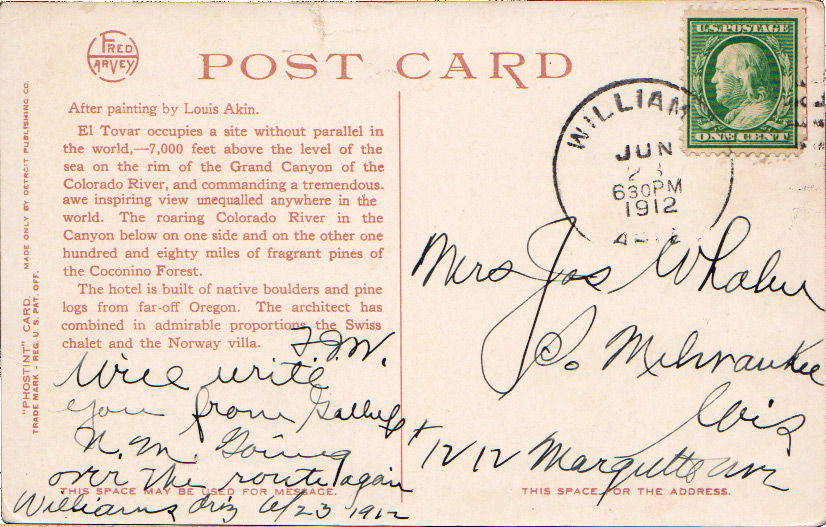 FRED
HARVEY
POST CARD
After painting by Louis Akin.
El Tovar occupies a site without parallel in
the world,—7,000 feet above the level of the
sea on the rim of the Grand Canyon of the
Colorado River, and commanding a tremendous.
awe inspiring view unequalled anywhere in the
world. The roaring Colorado River in the
Canyon below on one side and on the other one
hundred and eighty miles of fragrant pines of
the Coconino Forest.
The hotel is built of native boulders and pine
logs from far-off Oregon. The architect has
combined in admirable proportions the Swiss
chalet and the Norway villa.
"PHOSTINT" CARD. MADE ONLY BY DETROIT PUBLISHING CO.
TRADE MARK - REG. U. S. PAT. OFF.
Will write
you from Gallup
N.M. Going
over the route again
Williams Ariz 6/23 1912
THIS SPACE MAY BE USED FOR MESSAGE.
WILLIAM
JUN
23
630PM
1912
U.S. POSTAGE
ONE CENT
Mrs Jas Whalen
So. Milwaukee
Wis
1212 Marquette ave
THIS SPACE FOR THE ADDRESS.